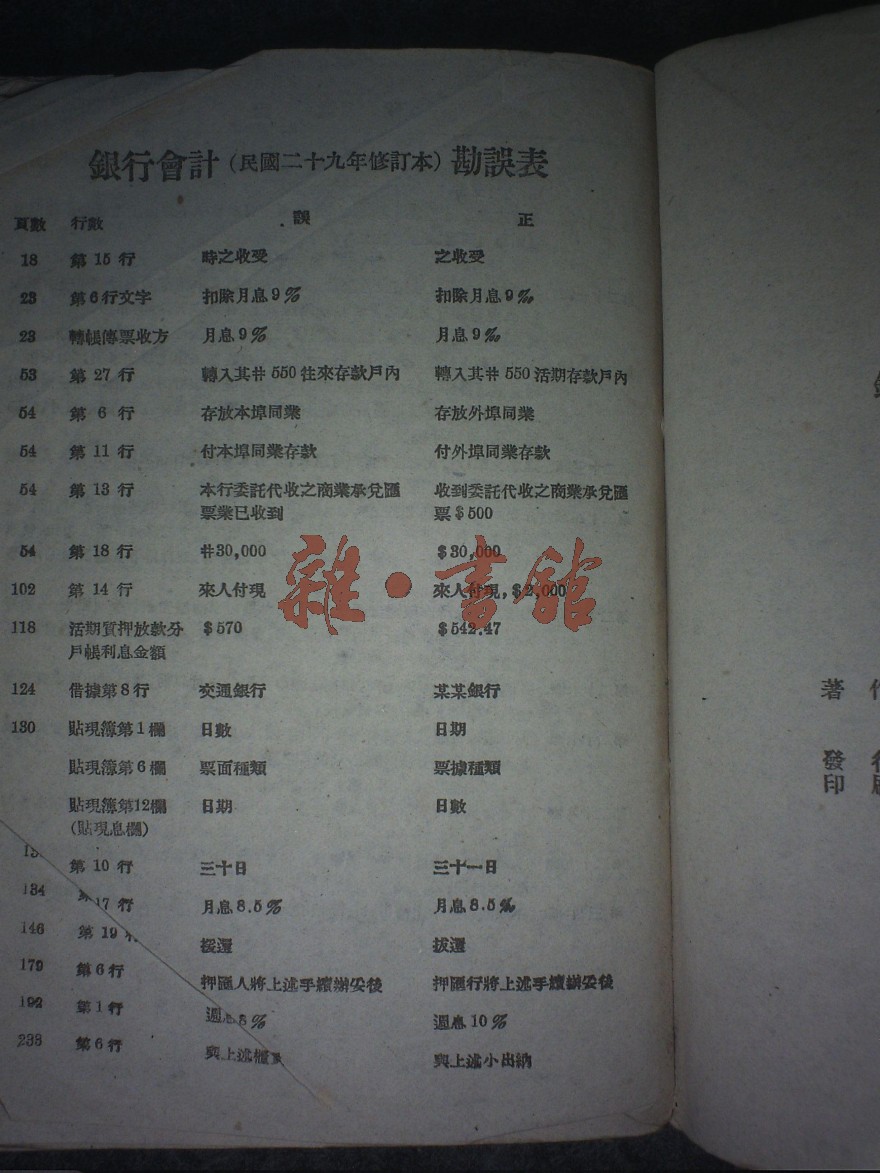 銀行會計(民國二十九年修訂本)勘誤表
頁數 行數 誤 正
18 第 15 行 時之收受 之收受
23 第 6 行文字 扣除月息 9 % 扣除月息 9 ‰
23 轉帳傳票收方 月息 9 % 月息 9 ‰
53 第 27 行 轉入其卄 550 往來存款戶內 轉入其卄 550 活期存款戶內
54 第 6 行 存放本埠同業 存放外埠同業
54 第 11 行 付本埠同業存款 付外埠同業存款
54 第 13 行 本行委託代收之商業承兌匯 收到委託代收之商業承兌匯
票業已收到 票$500
54 第 18 行 卄30,000 $30,000
102 第 14 行 來人付現 來人付現,$2,000
118 活期質押放款分 $570 $542.47
戶帳利息金額
124 借據第 8 行 交通銀行 某某銀行
130 貼現簿第 1 欄 日數 日期
貼現簿第 6 欄 票面種類 票據種類
貼現簿第12欄 日期 日數
(貼現息欄)
第 10 行 三十日 三十一日
134 17 行 月息 8.5 % 月息 8.5 ‰
146 第 19 撥還 拔還
179 第 6 行 押匯人將上述手續辦妥後 押匯行將上述手續辦妥後
192 第 1 行 週息 8 % 週息 10 %
233 第 6 行 與上述櫃 與上述小出納
雜·書館
著
發
印